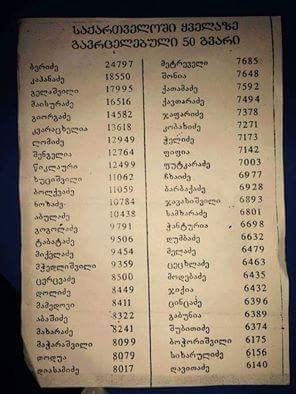 საქართველოში ყველაზე
გავრცელებული 50 გვარი
ბერიძე 24797
კაპანაძე 18550
გელაშვილი 17995
მაისურაძე 16516
გიორგაძე 14582
კვარაცხელია 13618
ლომიძე 12949
შენგელია 12764
წიკლაური 12499
ხუციშვილი 11062
ბოლქვაძე 11059
ნოზაძე 10784
აბულაძე 10438
გოგოლაძე 9791
ტაბატაძე 9506
მიქელაძე 9454
მჭედლიშვილი 9359
ცერცვაძე 8500
დოლიძე 8449
მამედოვი 8411
აბაშიძე 8322
მახარაძე 8241
მაჭარაშვილი 8099
თოდუა 8079
დიასამიძე 8017
მეტრეველი 7685
შონია 7648
ქათამაძე 7592
ქავთარაძე 7494
ჯაფარიძე 7378
კობახიძე 7271
ჭელიძე 7173
ფიფია 7142
ფუტკარაძე 7003
ჩხაიძე 6977
ბარბაქაძე 6928
ჯავახიშვილი 6893
სამხარაძე 6801
ჭანტურია 6698
დუმბაძე 6632
მელაძე 6479
ცეცხლაძე 6463
მოდებაძე 6435
ჯიქია 6432
ცინცაძე 6396
გაბუნია 6389
შუბითიძე 6374
ბოჭორიშვილი 6175
სიხარულიძე 6156
დავითაძე 6140